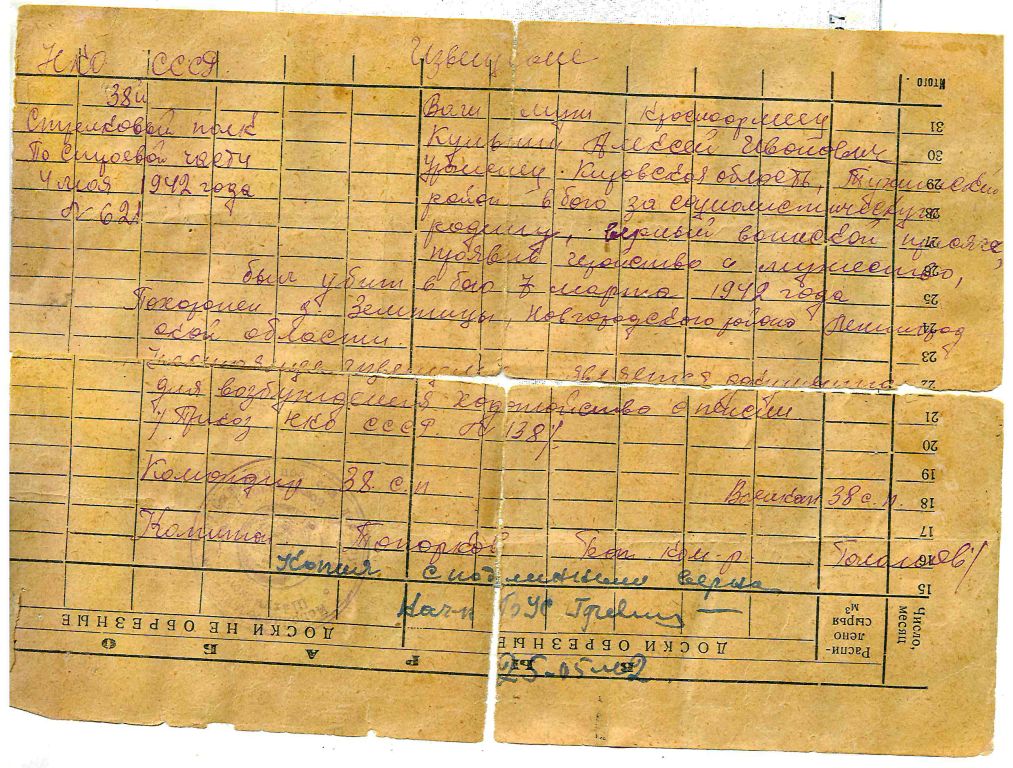 НКО СССР.
Извещение
38й
Стрелковый полк
По строевой части
4 мая 1942 года
N 621
Ваш муж Красноармеец
Алексей Иванович
Уроженец Кировская область, Тужинский
район в бою за социалистическую
родину, верный воинской присяге,
проявив геройство и мужество,
был убит в бою 7 марта 1942 года
Похоронен д. Земтицы Новгородского района Ленинград
ской области.
Настоящее извещение является документом
для возбуждения ходатайства о пенсии
/Приказ НКО СССР N 138/.
Командир 38 с.п
Военком 38 с.п.
Капитан Топорков
бат. ком-р
Копия с подлинным верна
Нач
25.05.42
Итого.
31
30
29
28
27
26
25
24
23
22
21
20
19
18
17
16
15
Число, месяц
Распилено сырья м³
ДОСКИ ОБРЕЗНЫЕ
ДОСКИ НЕ ОБРЕЗНЫЕ
В Ы Р А Б О
7